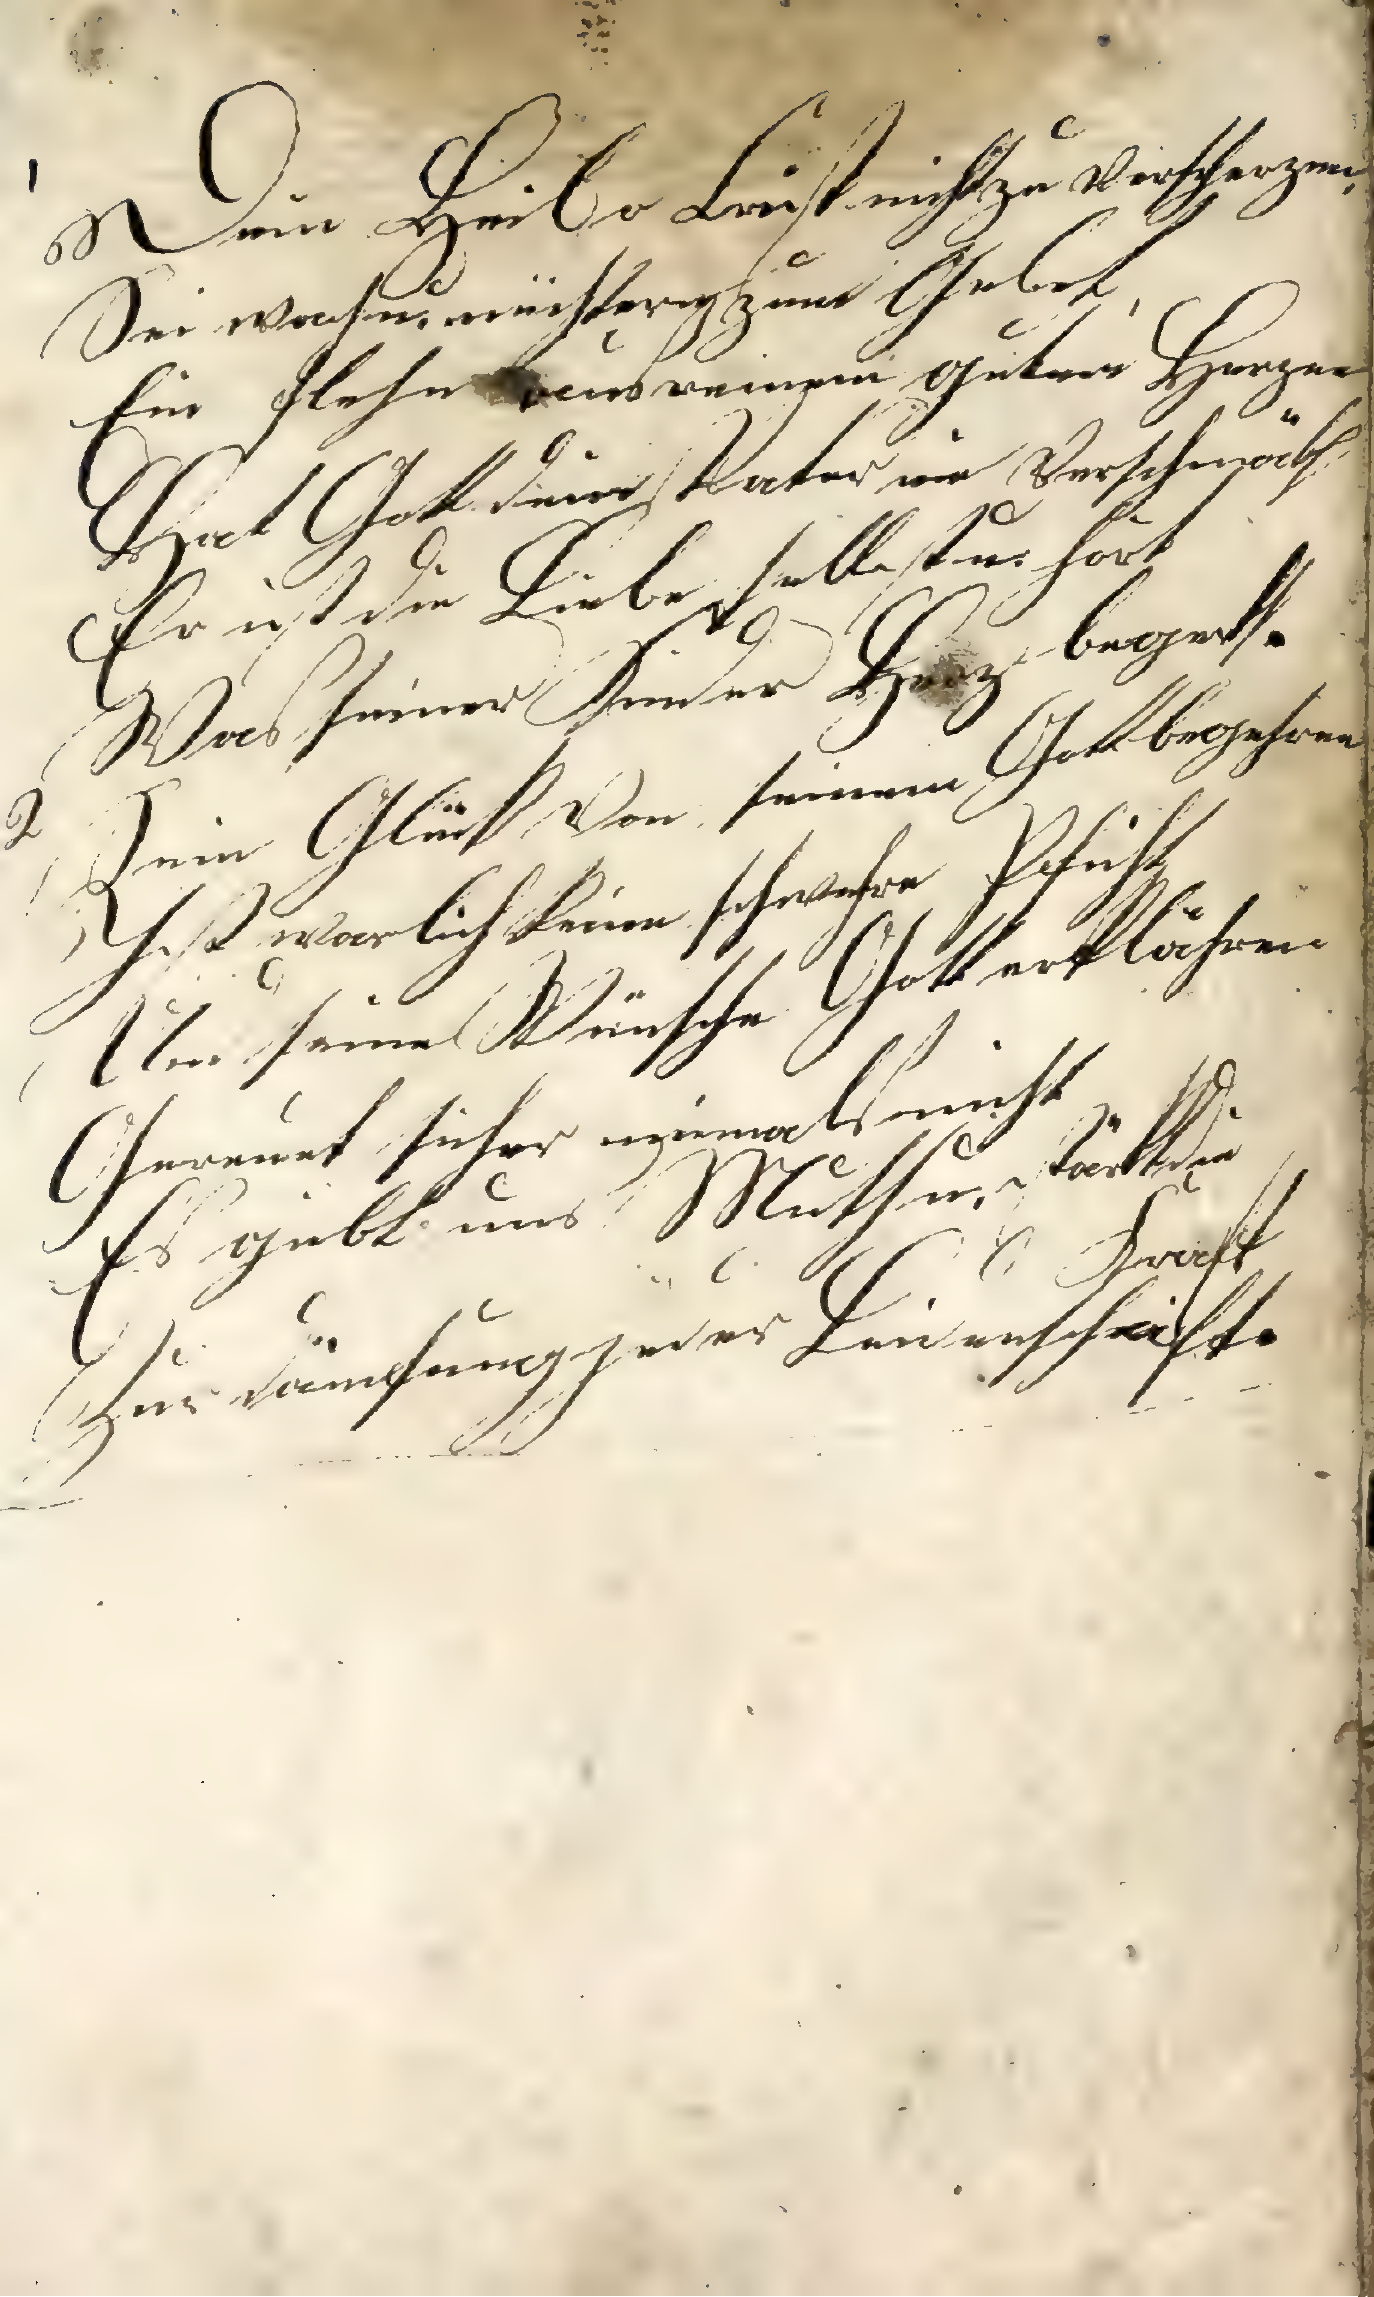 1 Dein Heil o Christ nicht zu verscherzen,
Sei wach u. nüchtern zum Gebet,
Ein Flehn aus reinem guten Herzen
Hat Gott dein Vater nie verschmäht
Er ist die Liebe selbst u. hört
Was seiner Kinder Herz begert.
2 Sein Glück von seinem Gott begehren
Ist warlich keine schwehre Pflicht
Um seine Wünsche Gott erklähren
Gereuet sicher niemals nicht
Es gibt uns Muth u. stärkt die
Kraft
Zur dämpfung jeder Leidenschaft.